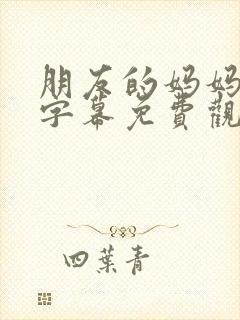 朋友的妈妈
字幕免費觀
四葉青